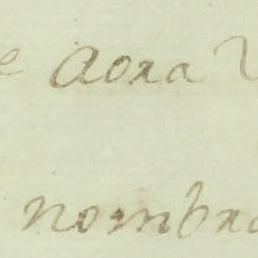 e aora
nombra